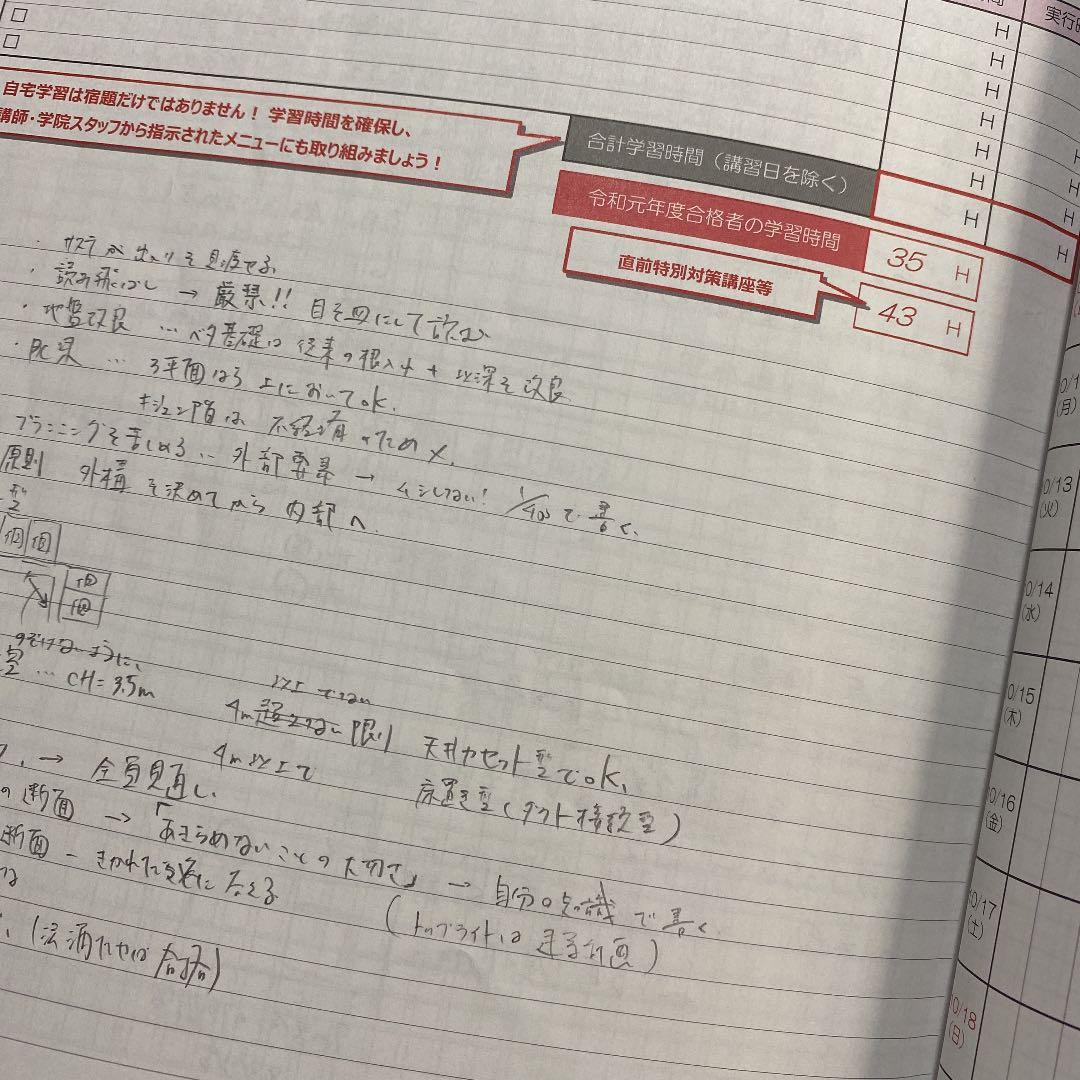 実行時
H
H
H
H
H
H
自宅学習は宿題だけではありません！ 学習時間を確保し、
講師・学院スタッフから指示されたメニューにも取り組みましょう！
合計学習時間（講習日を除く）
H
H
令和元年度合格者の学習時間
35 H
直前特別対策講座等
43 H
・サステが出より を見
・読み飛ばし → 厳禁!! 目を皿にして読む
・地盤改良 … ベタ基礎は従来の根入れ + 以深を改良
・PC梁 … 3平面は3 上においてOK.
は 不経済のため ×.
プランニングを苦しめる … 外部要素 → ムシしない! 1/400で書く.
原則 外構を決めてから内部へ.
個 個
個
個
のぞけないように、
… CH=3.5m
以上でない
4m 限り 天井カセット型でOK、
4m以上で 床置き型(ダクト接続型)
→ 全員見直し.
の断面 → 「あきらめないことの大切さ」 → 自分の知識で書く
断面 - きかれた に答える
(トップライトは 計画)
合格)
10/13
(火)
10/14
(水)
10/15
(木)
10/16
(金)
10/17
(土)
10/18
(日)